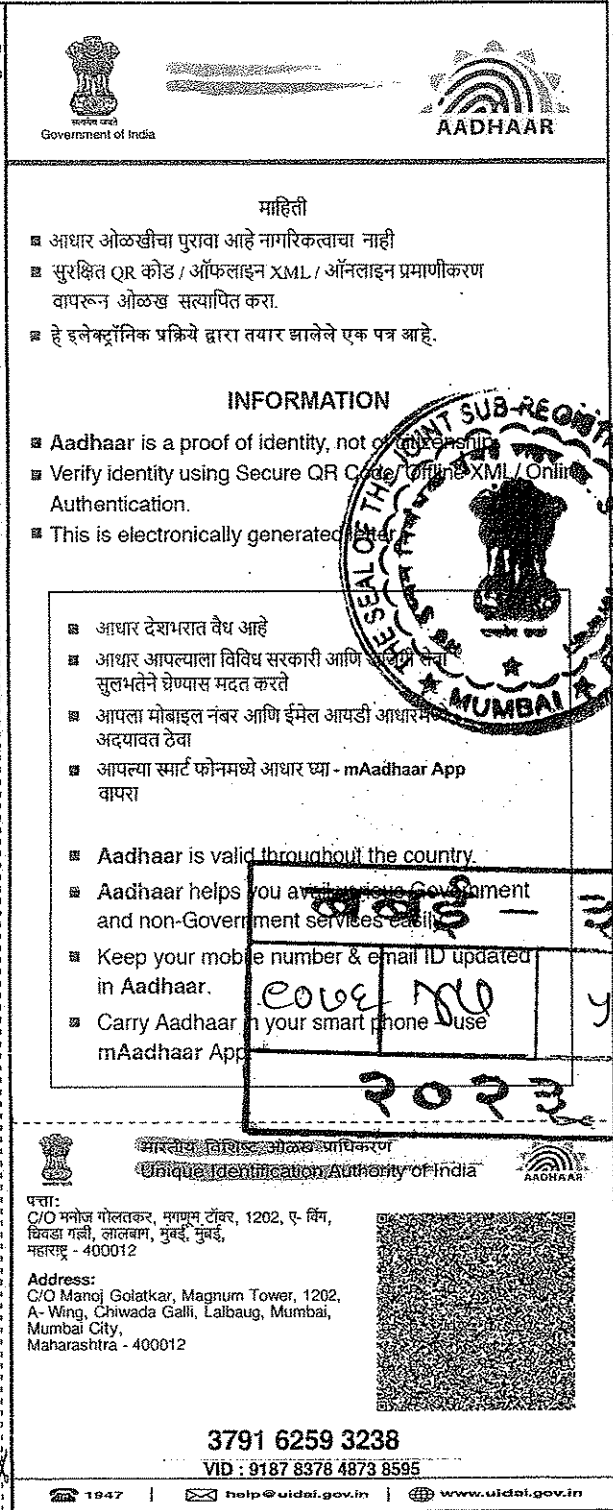 सत्यमेव जयते
Government of India
AADHAAR
माहिती
आधार ओळखीचा पुरावा आहे नागरिकत्वाचा नाही
सुरक्षित QR कोड / ऑफलाइन XML / ऑनलाइन प्रमाणीकरण
वापरून ओळख सत्यापित करा.
हे इलेक्ट्रॉनिक प्रक्रिये द्वारा तयार झालेले एक पत्र आहे.
INFORMATION
Aadhaar is a proof of identity, not of citizenship
Verify identity using Secure QR Code/ Offline XML / Online
Authentication.
This is electronically generated letter
THE SEAL OF THE JOINT SUB-REGISTR
MUMBAI
आधार देशभरात वैध आहे
आधार आपल्याला विविध सरकारी आणि खाजगी सेवा
सुलभतेने घेण्यास मदत करते
आपला मोबाइल नंबर आणि ईमेल आयडी आधारमध्ये
अदयावत ठेवा
आपल्या स्मार्ट फोनमध्ये आधार घ्या - mAadhaar App
वापरा
Aadhaar is valid throughout the country.
Aadhaar helps you avail various Government
and non-Government services easily
Keep your mobile number & email ID updated
in Aadhaar.
Carry Aadhaar in your smart phone - use
mAadhaar App
२०२३
भारतीय विशिष्ट ओळख प्राधिकरण
Unique Identification Authority of India
AADHAAR
पत्ता:
C/O मनोज गोलतकर, मगणूम टॉवर, 1202, ए- विंग,
चिवडा गल्ली, लालबाग, मुंबई, मुंबई,
महाराष्ट्र - 400012
Address:
C/O Manoj Golatkar, Magnum Tower, 1202,
A- Wing, Chiwada Galli, Lalbaug, Mumbai,
Mumbai City,
Maharashtra - 400012
3791 6259 3238
VID : 9187 8378 4873 8595
1947 | help@uidai.gov.in | www.uidai.gov.in